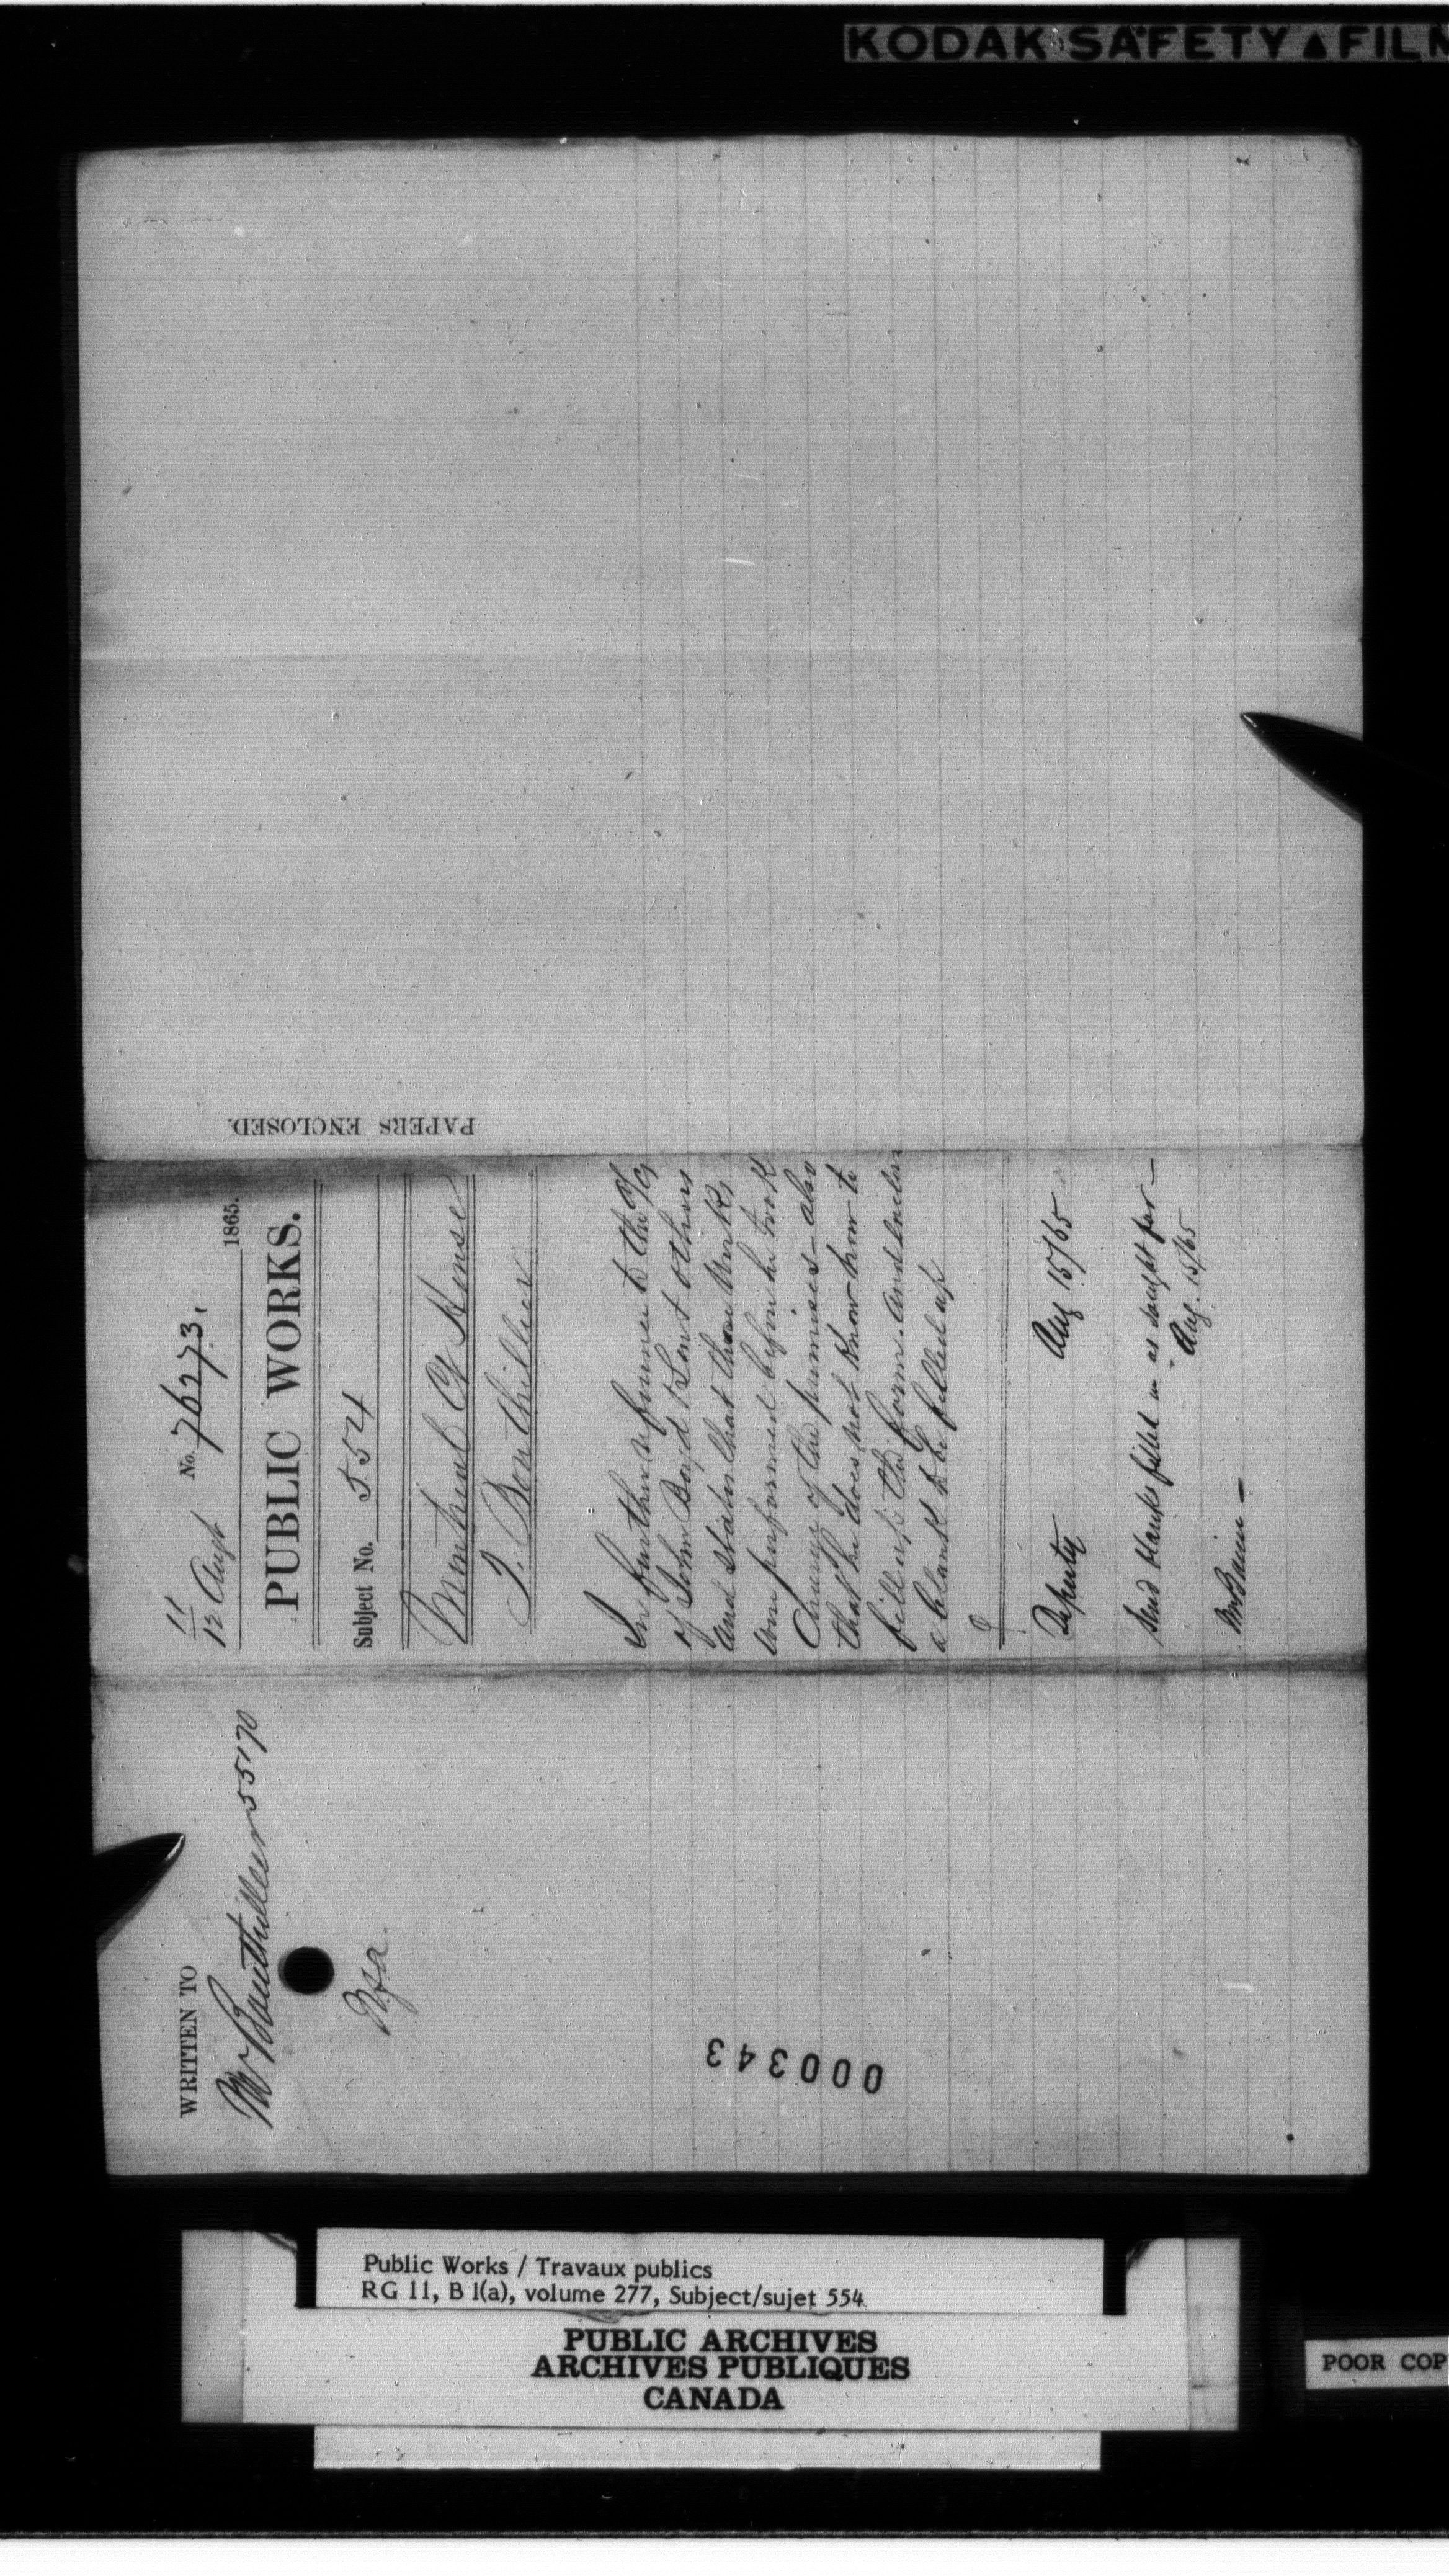 KODAK SAFETY FILM
PAPERS ENCLOSED.
11
12 Augt No. 76273, 1865.
PUBLIC WORKS.
Subject No. 554
Montreal Ct House
T. Bouthillier
In further reference to the %
of John Boyd & Son & others
and states that these works
were performed before he took
Charge of the premises - also
that he does not know how to
fill up the form and
a blank to be filled up
Deputy Aug 15/65
Send blanks filled in as sought for —
Aug. 15/65
WRITTEN TO
Mr Bouthillier 55170
000343
Public Works / Travaux publics
RG 11, B 1(a), volume 277, Subject/sujet 554
PUBLIC ARCHIVES
ARCHIVES PUBLIQUES
CANADA
POOR COP